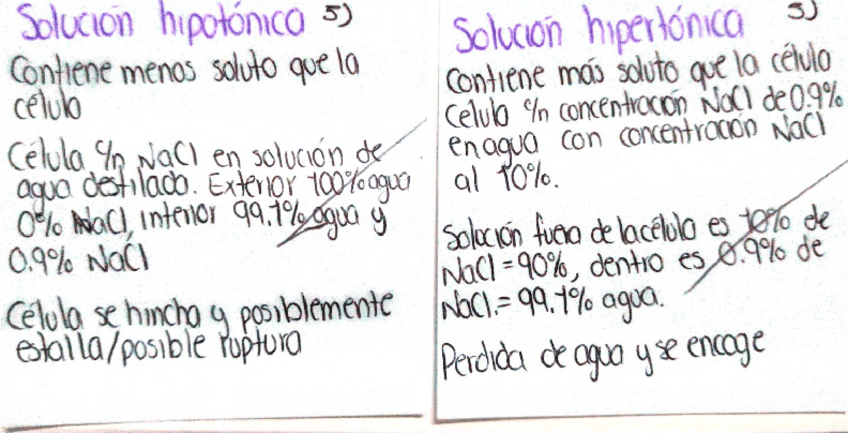 Solución hipotónica 5)
Contiene menos soluto que la
célula
Célula c/n NaCl en solución de
agua destilada. Exterior 100% agua
0% NaCl, interior 99.1% agua y
0.9% NaCl
Célula se hincha y posiblemente
estalla/posible ruptura
Solución hipertónica 5)
Contiene más soluto que la célula
Célula c/n concentración NaCl de 0.9%
en agua con concentración NaCl
al 10%.
Solución fuera de la célula es 10% de
NaCl = 90%, dentro es 0.9% de
NaCl. = 99.1% agua.
Perdida de agua y se encoge